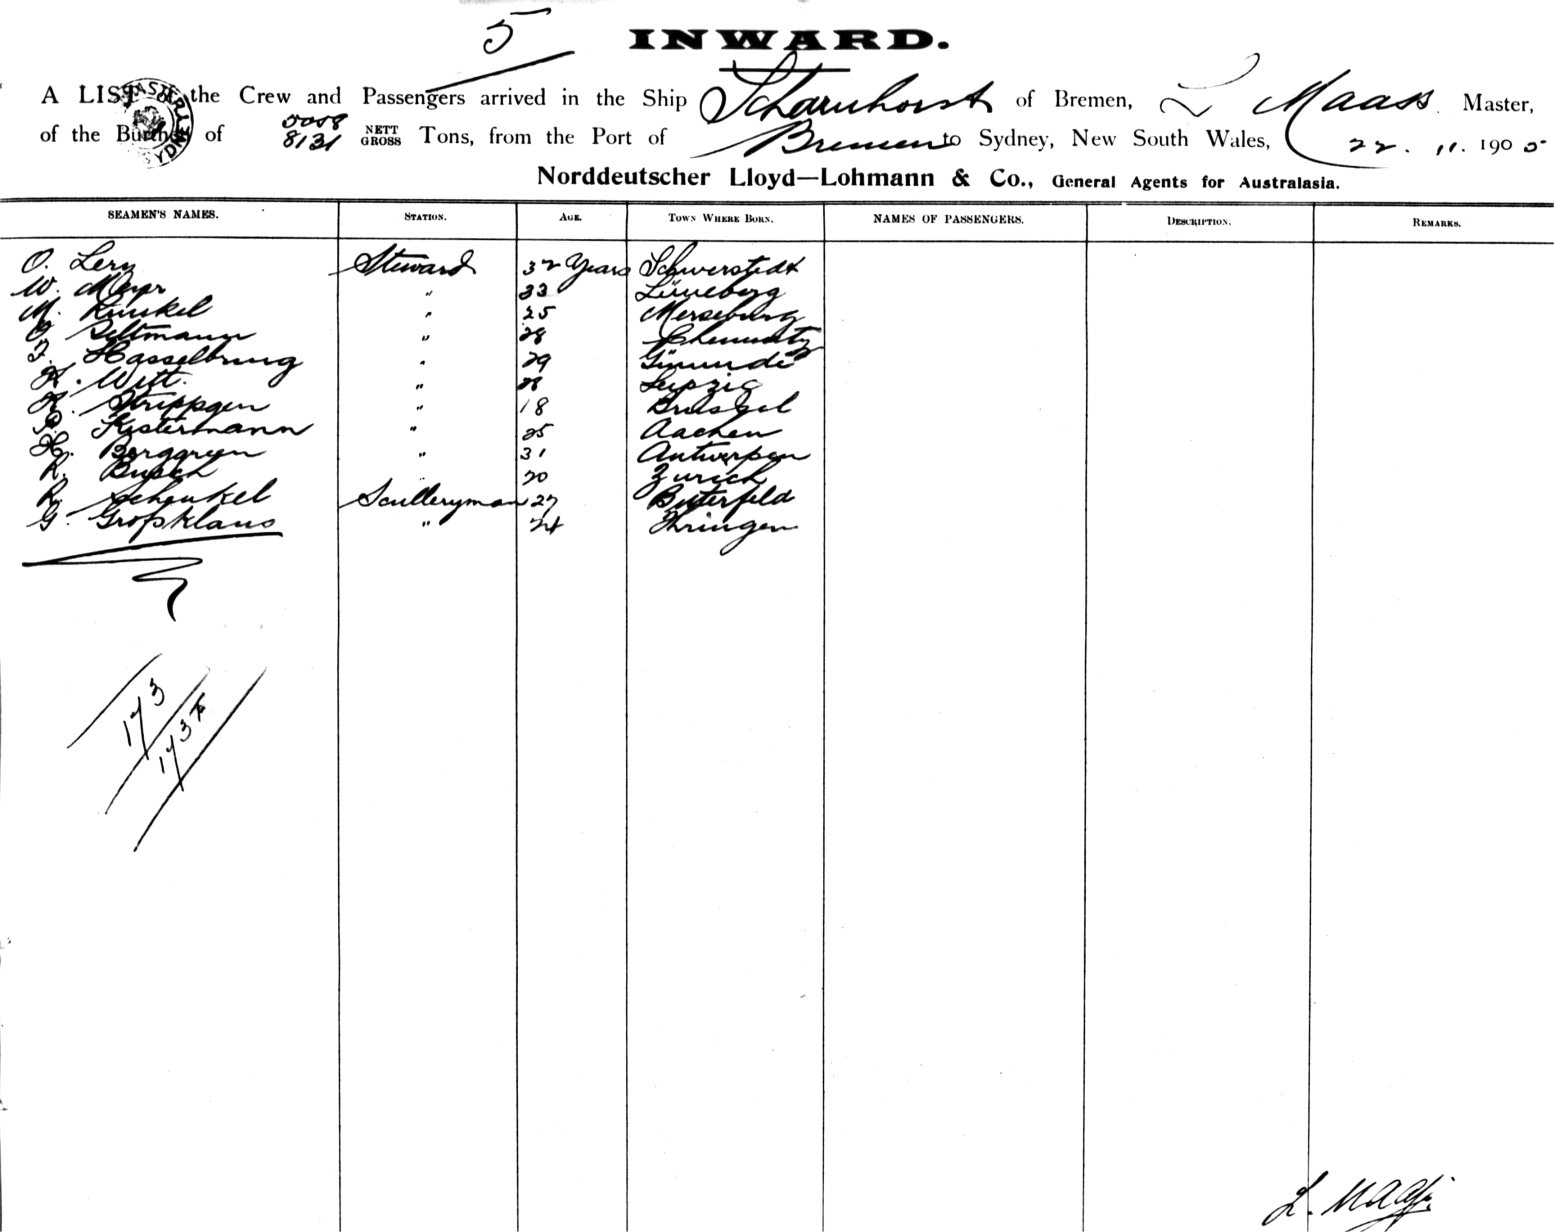 5
INWARD.
A LIST of the Crew and Passengers arrived in the Ship Scharnhorst of Bremen, L Maass Master,
of the Burthen of 5058 8131 NETT GROSS Tons, from the Port of Bremen to Sydney, New South Wales, 22. 11. 1905
Norddeutscher Lloyd—Lohmann & Co., General Agents for Australasia.
SEAMEN'S NAMES. STATION. AGE. TOWN WHERE BORN. NAMES OF PASSENGERS. DESCRIPTION. REMARKS.
O. Lery Steward 32 Years Schwerstedt
W. Meyer " 33 Lüneberg
M. Kunkel " 25 Merseburg
Seltmann " 28 Chemnitz
F. Hasselbring " 29 Gmunde
K. Witt. " 28 Leipzig
Strippgen " 18 Brüssel
Kestermann " 25 Aachen
H. Berggreen " 31 Antwerpen
R. Busch 20 Zurich
R. Schenkel Sculleryman 27 Bitterfeld
G. Großklaus " 24 Ihringen
173
173
L. Maass